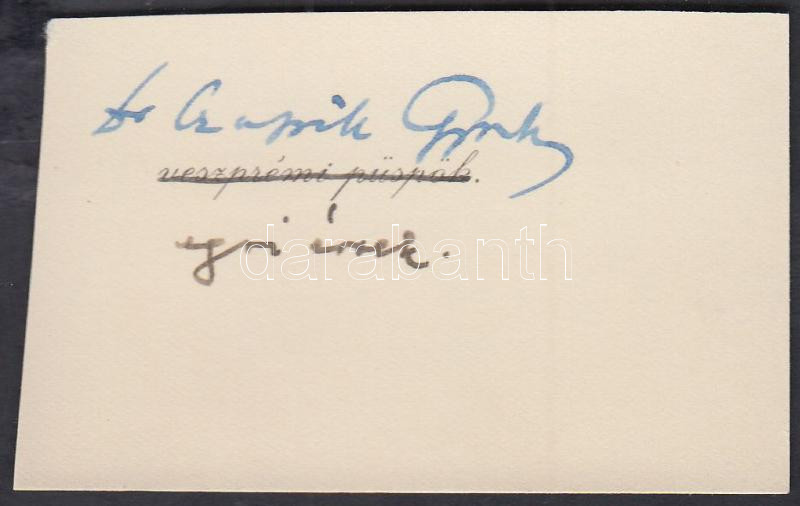 Dr Czapik Gyula
veszprémi püspök.
egri érsek.
darabanth